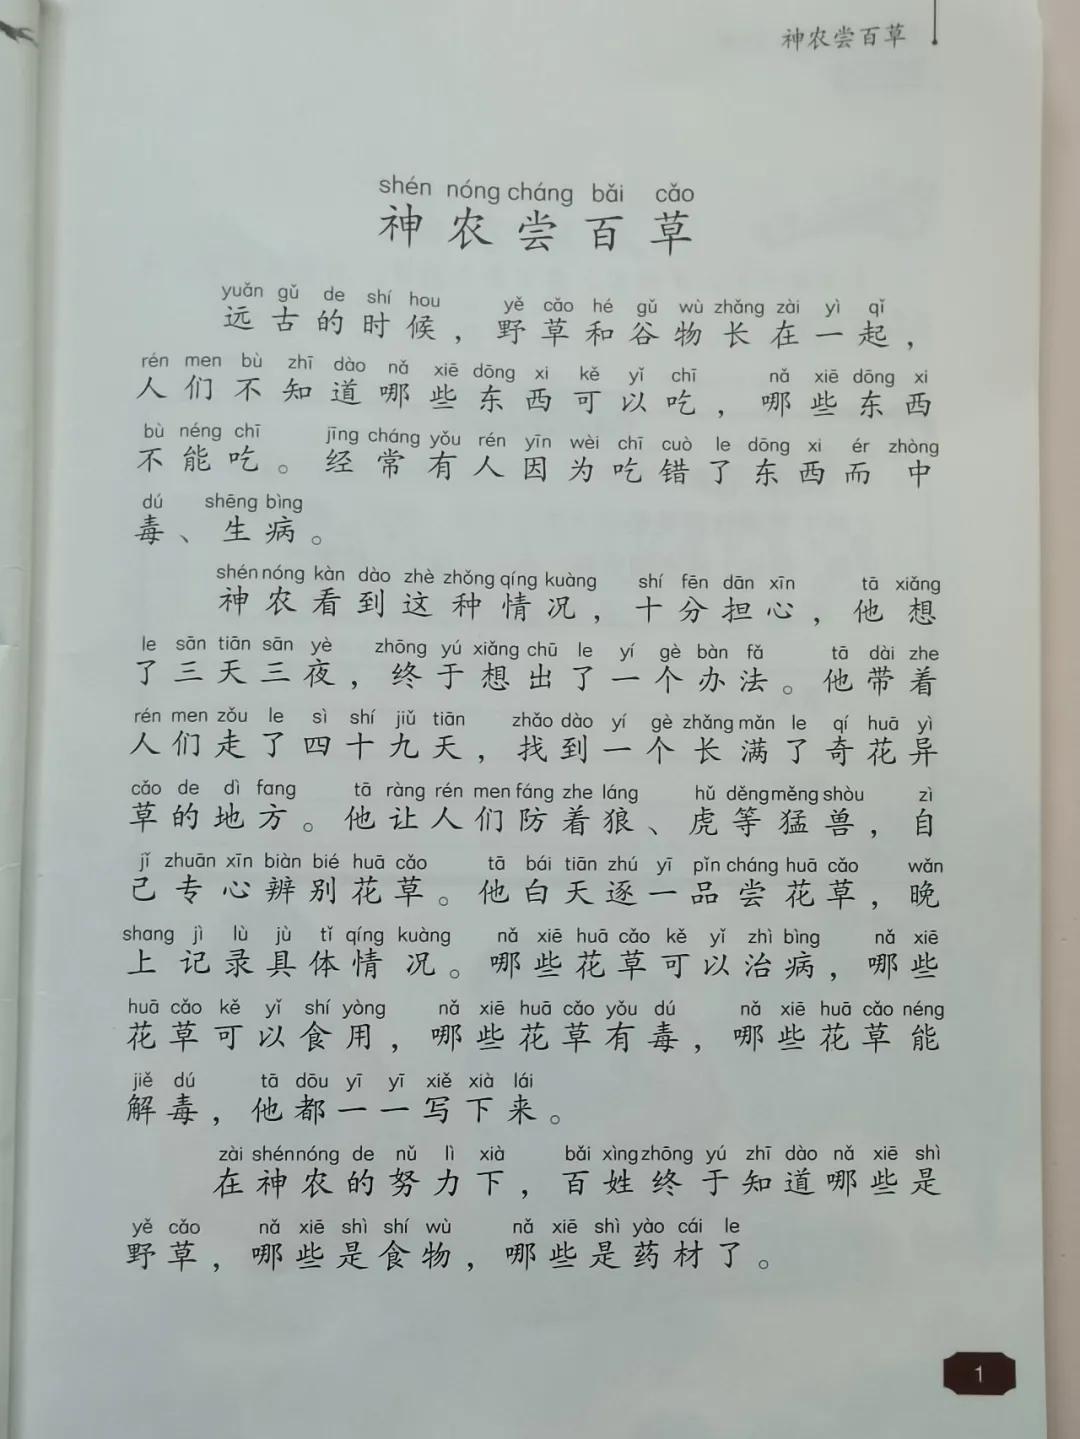 神农尝百草
shén nóng cháng bǎi cǎo
神农尝百草
yuǎn gǔ de shí hou yě cǎo hé gǔ wù zhǎng zài yì qǐ
远古的时候，野草和谷物长在一起，
rén men bù zhī dào nǎ xiē dōng xi kě yǐ chī nǎ xiē dōng xi
人们不知道哪些东西可以吃，哪些东西
bù néng chī jīng cháng yǒu rén yīn wèi chī cuò le dōng xi ér zhòng
不能吃。经常有人因为吃错了东西而中
dú shēng bìng
毒、生病。
shén nóng kàn dào zhè zhǒng qíng kuàng shí fēn dān xīn tā xiǎng
神农看到这种情况，十分担心，他想
le sān tiān sān yè zhōng yú xiǎng chū le yí gè bàn fǎ tā dài zhe
了三天三夜，终于想出了一个办法。他带着
rén men zǒu le sì shí jiǔ tiān zhǎo dào yí gè zhǎng mǎn le qí huā yì
人们走了四十九天，找到一个长满了奇花异
cǎo de dì fang tā ràng rén men fáng zhe láng hǔ děng měng shòu zì
草的地方。他让人们防着狼、虎等猛兽，自
jǐ zhuān xīn biàn bié huā cǎo tā bái tiān zhú yī pǐn cháng huā cǎo wǎn
己专心辨别花草。他白天逐一品尝花草，晚
shang jì lù jù tǐ qíng kuàng nǎ xiē huā cǎo kě yǐ zhì bìng nǎ xiē
上记录具体情况。哪些花草可以治病，哪些
huā cǎo kě yǐ shí yòng nǎ xiē huā cǎo yǒu dú nǎ xiē huā cǎo néng
花草可以食用，哪些花草有毒，哪些花草能
jiě dú tā dōu yī yī xiě xià lái
解毒，他都一一写下来。
zài shén nóng de nǔ lì xià bǎi xìng zhōng yú zhī dào nǎ xiē shì
在神农的努力下，百姓终于知道哪些是
yě cǎo nǎ xiē shì shí wù nǎ xiē shì yào cái le
野草，哪些是食物，哪些是药材了。
1